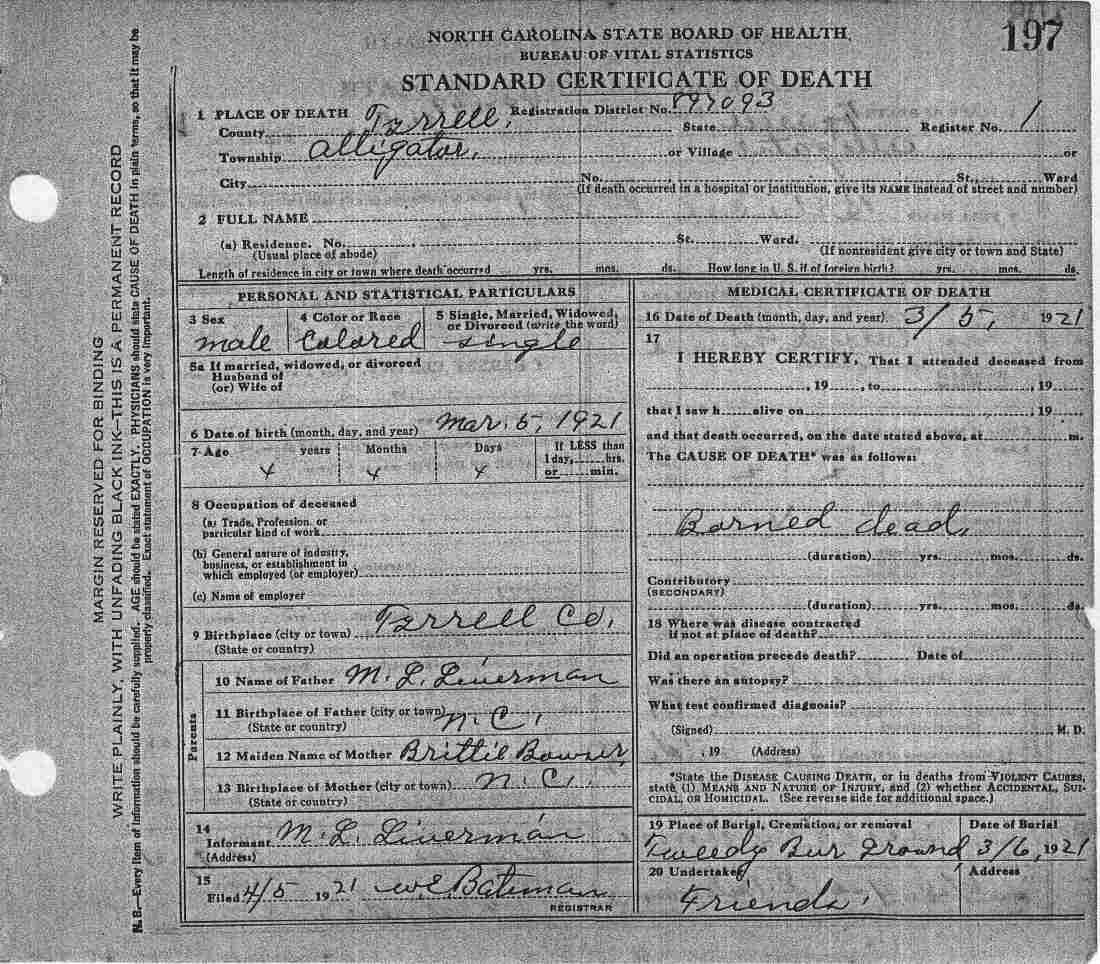 197
NORTH CAROLINA STATE BOARD OF HEALTH,
BUREAU OF VITAL STATISTICS
STANDARD CERTIFICATE OF DEATH
1 PLACE OF DEATH Registration District No. 897093
County Tyrrell, State Register No. 1
Township Alligator, or Village or
City No. St., Ward
(If death occurred in a hospital or institution, give its NAME instead of street and number)
2 FULL NAME
(a) Residence. No. St. Ward.
(Usual place of abode) (If nonresident give city or town and State)
Length of residence in city or town where death occurred yrs. mos. ds. How long in U. S. if of foreign birth? yrs. mos. ds.
PERSONAL AND STATISTICAL PARTICULARS
3 Sex 4 Color or Race 5 Single, Married, Widowed,
or Divorced (write the word)
male Colored single
5a If married, widowed, or divorced
Husband of
(or) Wife of
6 Date of birth (month, day, and year) Mar. 5, 1921
7 Age years Months Days If LESS than
1 day, hrs.
or min.
8 Occupation of deceased
(a) Trade, Profession, or
particular kind of work
(b) General nature of industry,
business, or establishment in
which employed (or employer)
(c) Name of employer
9 Birthplace (city or town) Tyrrell Co.
(State or country)
Parents
10 Name of Father M. L. Liverman
11 Birthplace of Father (city or town) N. C.
(State or country)
12 Maiden Name of Mother Brittie
13 Birthplace of Mother (city or town) N. C.
(State or country)
14
Informant M. L. Liverman
(Address)
15
Filed 4/5 1921 W E Bateman
REGISTRAR
MEDICAL CERTIFICATE OF DEATH
16 Date of Death (month, day, and year) 3/5, 1921
17
I HEREBY CERTIFY, That I attended deceased from
, 19 , to , 19
that I saw h alive on , 19 ,
and that death occurred, on the date stated above, at m.
The CAUSE OF DEATH* was as follows:
Borned dead,
(duration) yrs. mos. ds.
Contributory
(SECONDARY)
(duration) yrs. mos. ds.
18 Where was disease contracted
if not at place of death?
Did an operation precede death? Date of
Was there an autopsy?
What test confirmed diagnosis?
(Signed) , M. D.
, 19 (Address)
*State the DISEASE CAUSING DEATH, or in deaths from VIOLENT CAUSES,
state (1) MEANS AND NATURE OF INJURY, and (2) whether ACCIDENTAL, SUI-
CIDAL, or HOMICIDAL. (See reverse side for additional space.)
19 Place of Burial, Cremation, or removal Date of Burial
Tweedy Bur Ground 3/6, 1921
20 Undertaker Address
Friends,
MARGIN RESERVED FOR BINDING
WRITE PLAINLY, WITH UNFADING BLACK INK—THIS IS A PERMANENT RECORD
N. B.—Every item of information should be carefully supplied. AGE should be stated EXACTLY. PHYSICIANS should state CAUSE OF DEATH in plain terms, so that it may be
properly classified. Exact statement of OCCUPATION is very important.